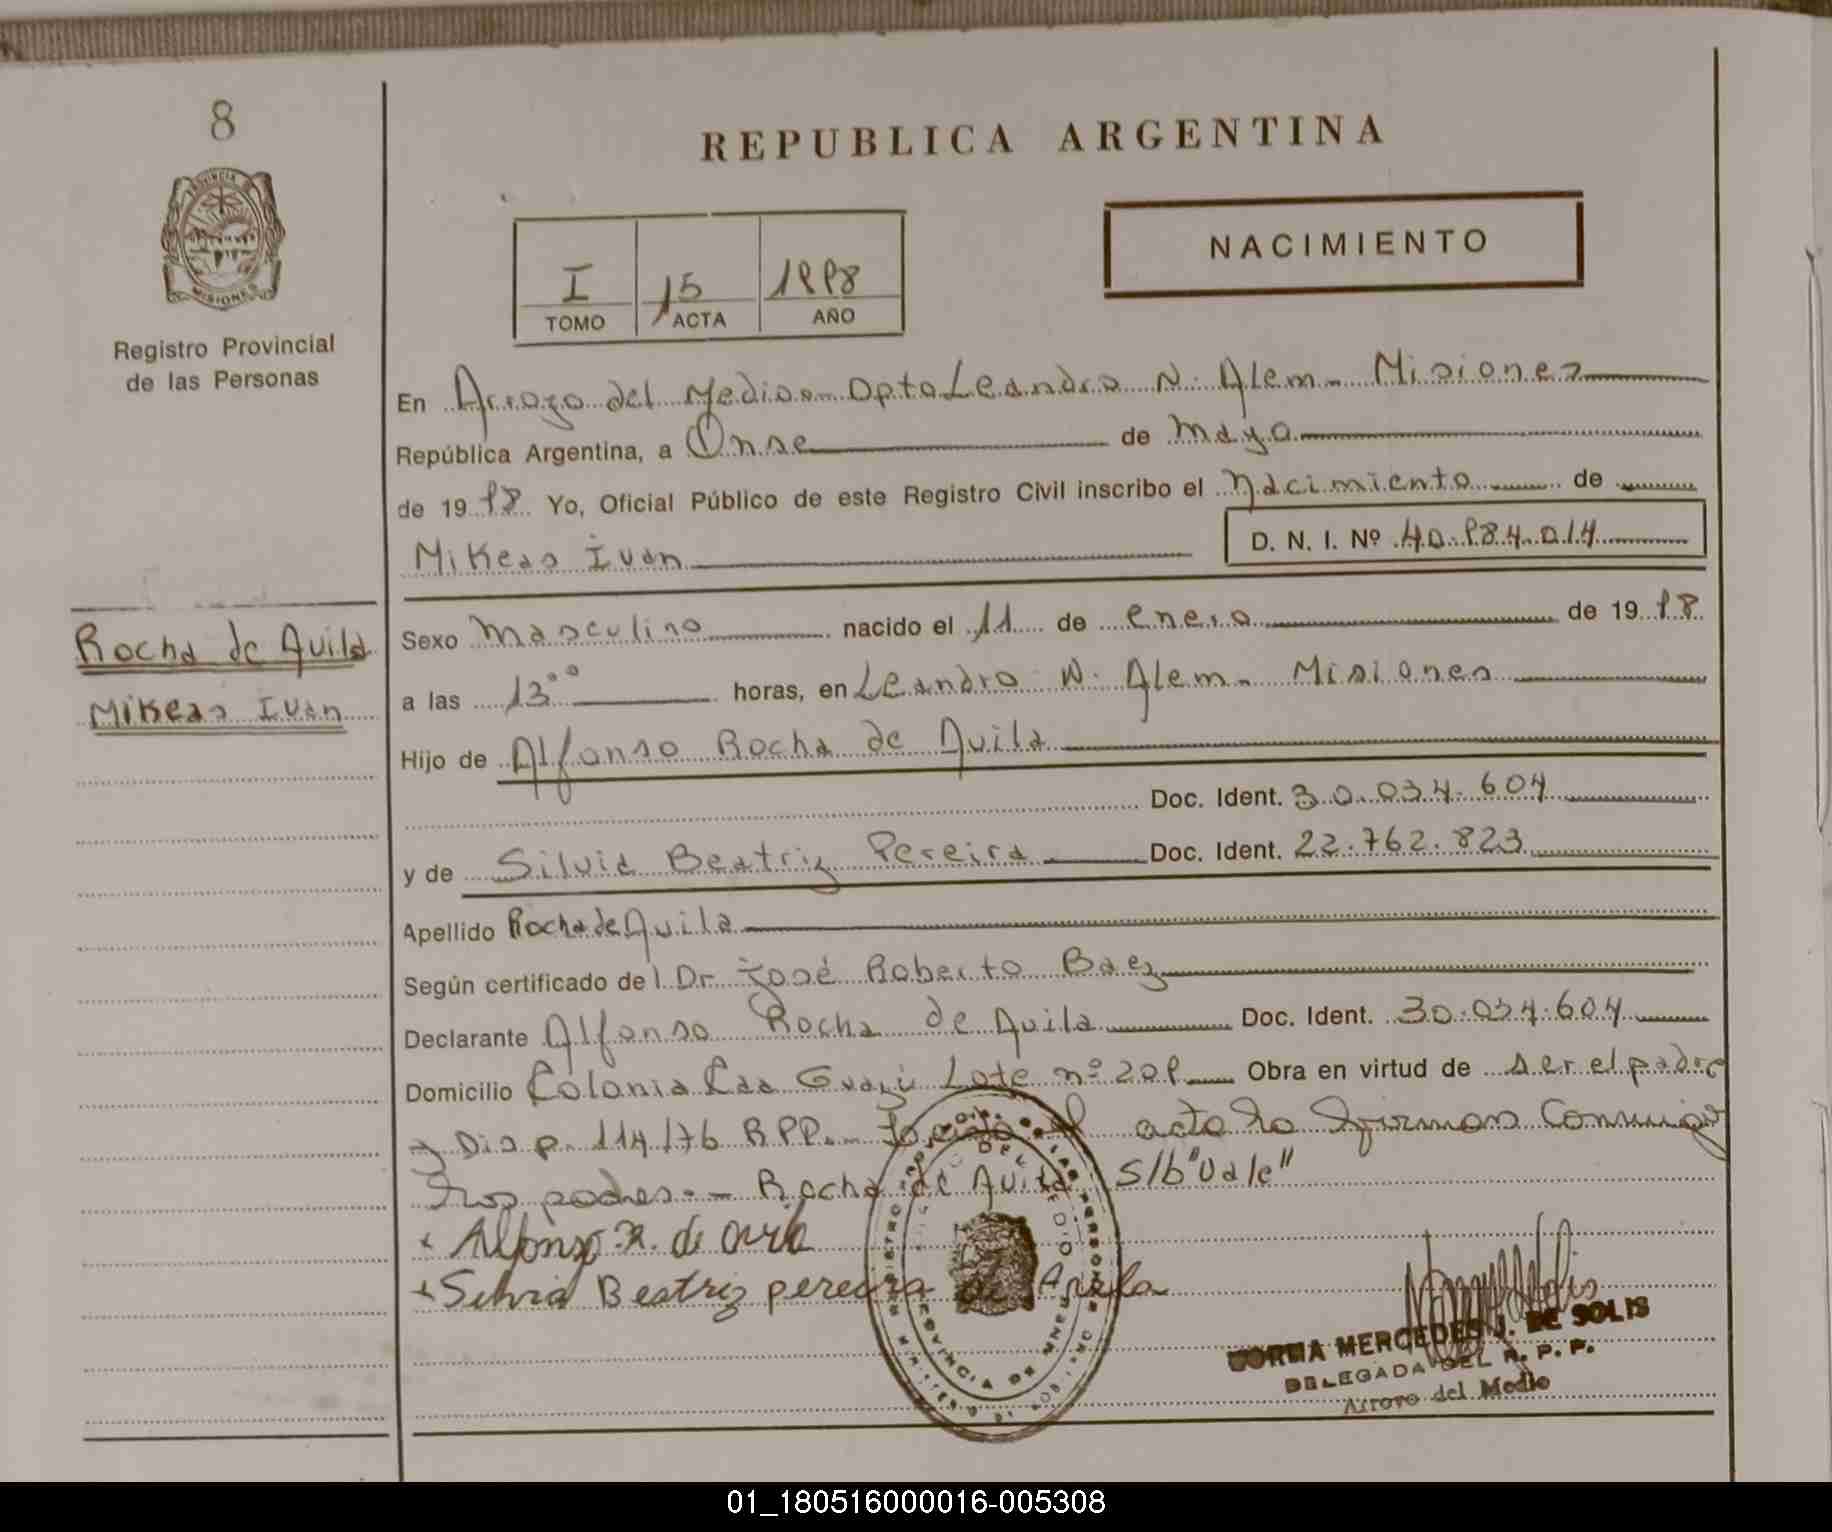 8
PROVINCIA DE
MISIONES
Registro Provincial
de las Personas
REPUBLICA ARGENTINA
NACIMIENTO
I 15 1998
TOMO ACTA AÑO
En Arroyo del Medio - Dpto Leandro N. Alem - Misiones
República Argentina, a Onse de mayo
de 1998 Yo, Oficial Público de este Registro Civil inscribo el nacimiento de
Mikeas Ivan D. N. I. Nº 40.984.014
Rocha de Avila
Mikeas Ivan
Sexo masculino nacido el 11 de enero de 1998
a las 13°° horas, en Leandro N. Alem - Misiones
Hijo de Alfonso Rocha de Avila
Doc. Ident. 30.034.604
y de Silvia Beatriz Pereira Doc. Ident. 22.762.823
Apellido Rocha de Avila
Según certificado del Dr José Roberto Baez
Declarante Alfonso Rocha de Avila Doc. Ident. 30.034.604
Domicilio Colonia Caa Guazú Lote nº 209 Obra en virtud de ser el padre
y Disp. 114/76 RPP. - acto lo firman
padres. - Rocha de Avila s/b "Vale"
x Alfonso R. de avila
x Silvia Beatriz pereira de Avila
NORMA MERCEDES J. DE SOLIS
DELEGADA DEL R. P. P.
Arroyo del Medio
01_180516000016-005308